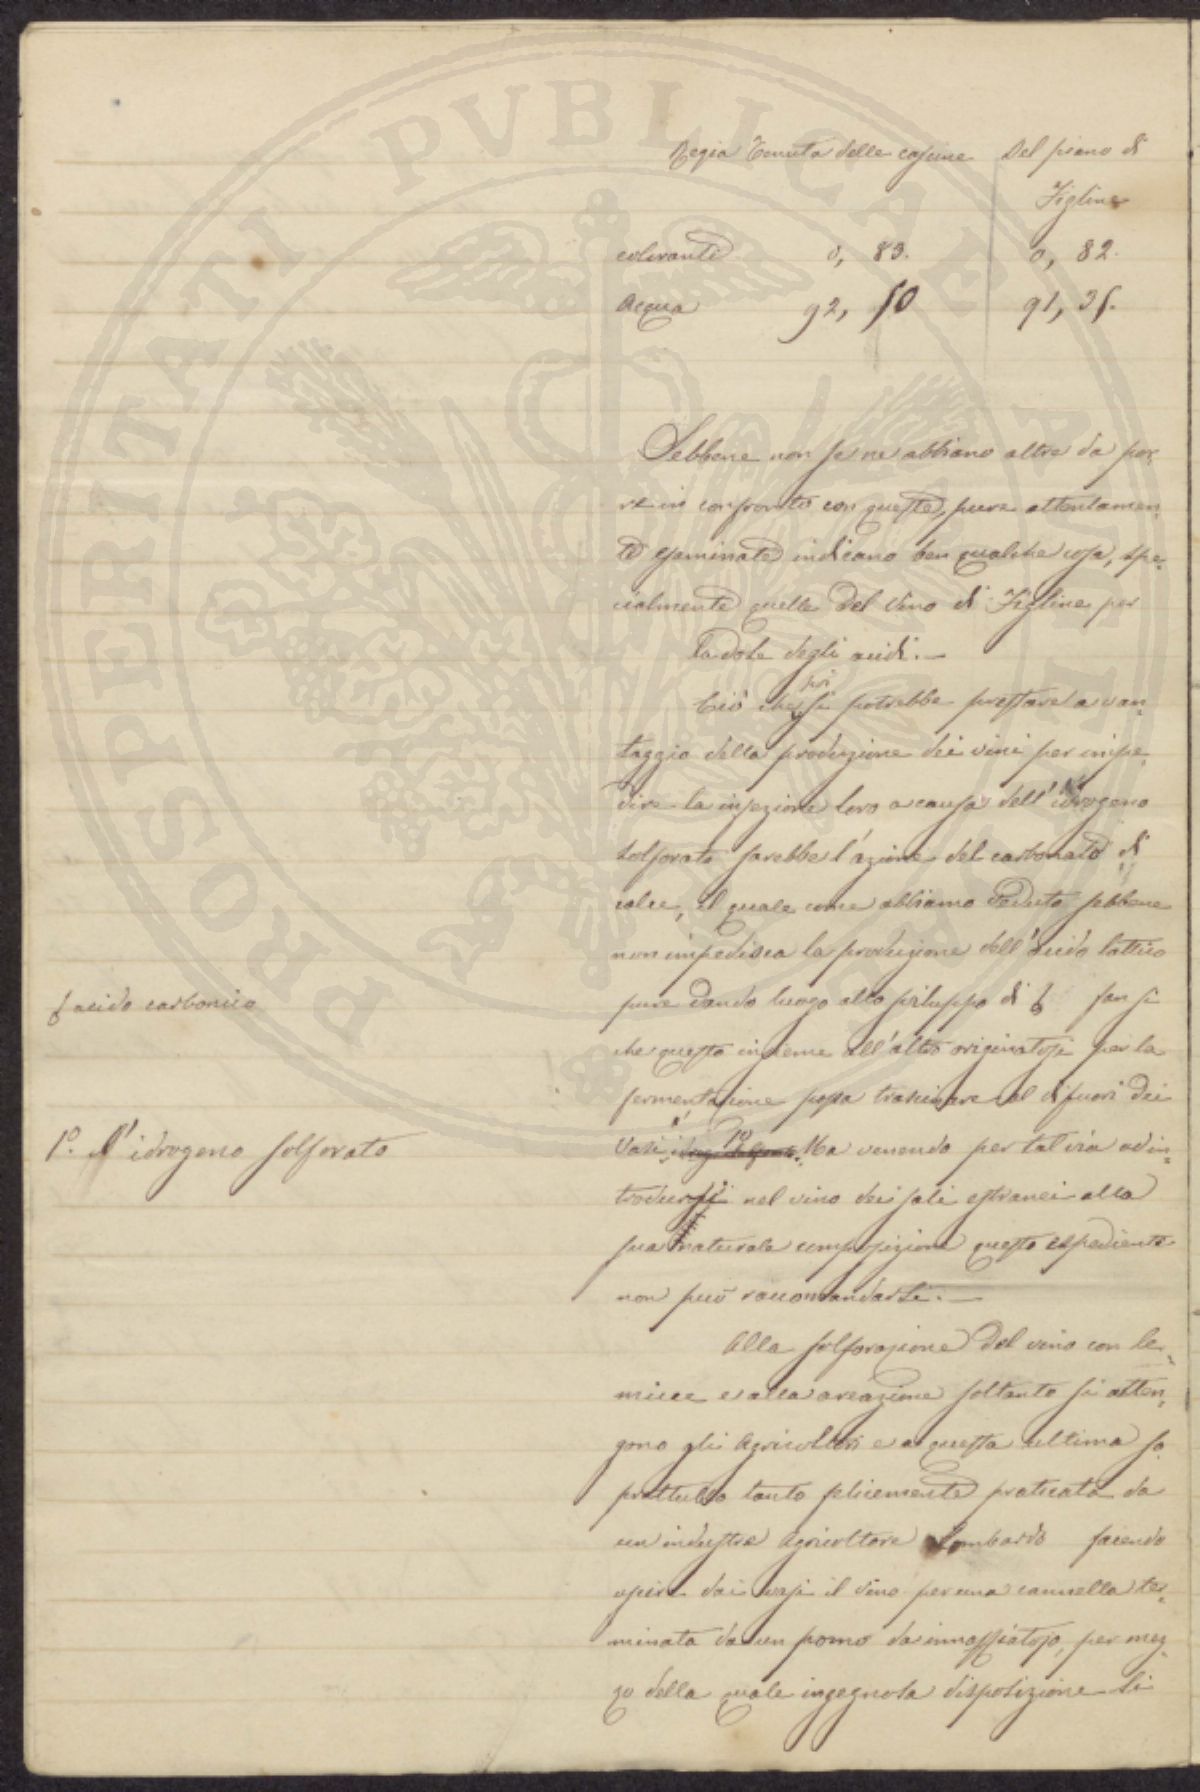 Regia Tenuta delle cascine | Del piano di
Figline
colorante 0, 83. 0, 82.
Acqua 92, 50 91, 35.
Sebbene non se ne abbiano altre da por-
re in confronto con queste, pure attentamen-
te esaminate indicano ben qualche cosa, spe-
cialmente quelle del vino di Figline per
la dose degli acidi.—
poi
Ciò che si potrebbe prestare a van-
taggio della produzione dei vini per impe-
dire la infezione loro a causa dell'idrogeno
solforato sarebbe l'azione del carbonato di
calce, il quale come abbiamo veduto sebbene
non impedisca la produzione dell'acido lattico
acido carbonico
pure dando luogo allo sviluppo di fan sì
che questo insieme all'altro originatosi per la
fermentazione possa trascinare al di fuori dei
1º. l'idrogeno solforato
vasi 1º Ma venendo per tal via ad in-
trodursi nel vino dei sali estranei alla
sua naturale composizione questo espediente
non può raccomandarsi.—
Alla solforazione del vino con le
micce e alla areazione soltanto si atten-
gono gli Agricoltori e a questa ultima so-
prattutto tanto felicemente praticata da
un industre Agricoltore Lombardo facendo
uscire dai vasi il vino per una cannella ter-
minata da un pomo da innaffiatojo, per mez-
zo della quale ingegnosa disposizione si
PROSPERITATI PVBLICAE